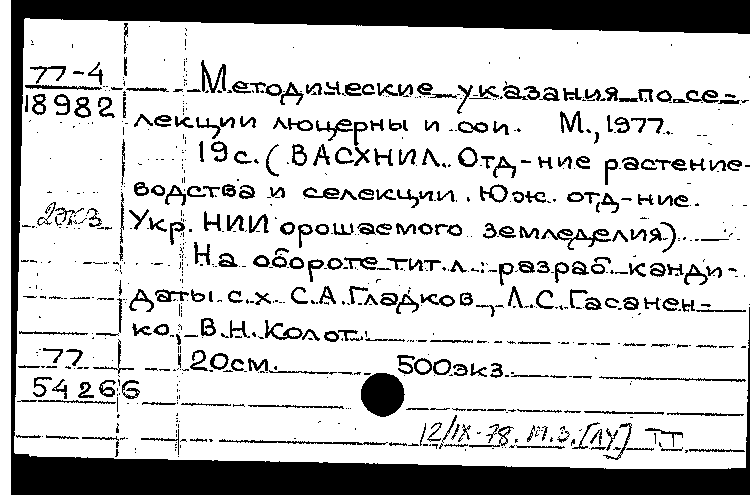 77-4 Методические указания по се-
18982 лекции люцерны и сои. М., 1977.
19с. (ВАСХНИЛ. Отд-ние растение-
водства и селекции. Юж. отд-ние.
2экз Укр. НИИ орошаемого земледелия).
На обороте тит.л.: разраб. канди-
даты с.х С.А.Гладков, Л.С.Гасанен-
ко, В.Н.Колот.
77 20см. 500экз.
54266
12/IX-78. М.З. [ЛУ] Т.Т.